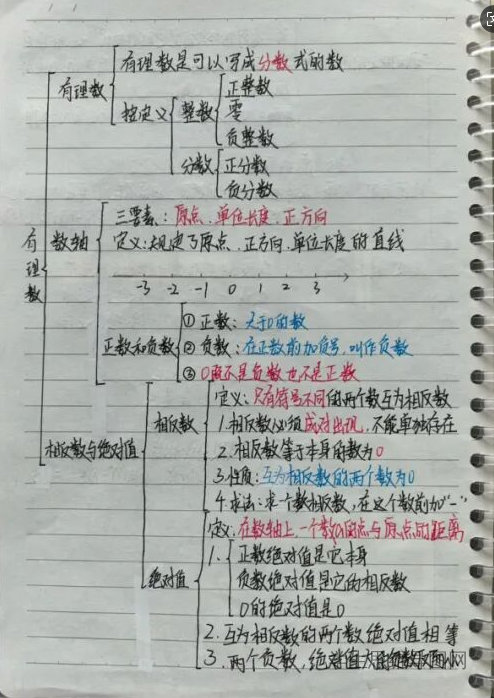 有理数是可以写成分数式的数
有理数
正整数
按定义
整数
零
负整数
分数
正分数
负分数
三要素：原点．单位长度．正方向
有理数
数轴
定义：规定了原点．正方向．单位长度的直线
-3 -2 -1 0 1 2 3
正数和负数
① 正数：大于0的数
② 负数：在正数前加负号，叫作负数
③ 0既不是负数也不是正数
相反数与绝对值
相反数
定义：只有符号不同的两个数互为相反数
1.相反数必须成对出现，不能单独存在
2.相反数等于本身的数为0
3.性质：互为相反数的两个数为0
4.求法：求一个数相反数，在这个数前加"-"
绝对值
定义：在数轴上，一个数a的点与原点的距离
1.
正数绝对值是它本身
负数绝对值是它的相反数
0的绝对值是0
2.互为相反数的两个数绝对值相等
3.两个负数，绝对值大的